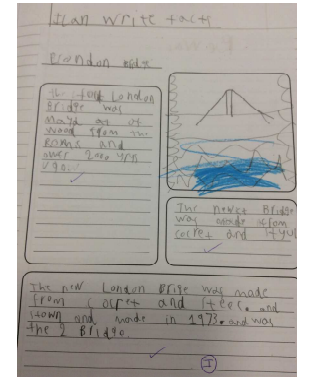 I can write facts
London Bridge
the first London
Bridge was
mayd at of
wood from the
Romns and
over 2000 yrs
ago.
The newest Bridge
was made from
cocret and
The new London Brige was made
from cocret and steel. and
stown and made in 1973. and was
the 2 Bridge.
I